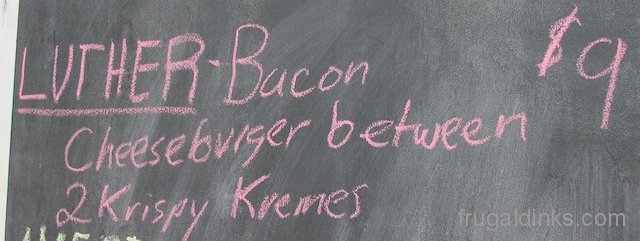 LUTHER - Bacon $9
Cheeseburger between
2 Krispy Kremes
frugaldinks.com